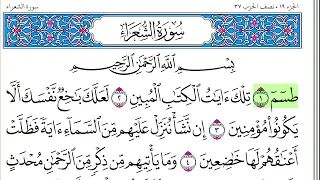 الجزء ١٩ نصف الحزب ٣٧ سورة الشعراء
سُورَةُ الشُّعَرَاءِ
بِسْمِ اللَّهِ الرَّحْمَٰنِ الرَّحِيمِ
طسٓمٓ ١ تِلْكَ ءَايَٰتُ الْكِتَٰبِ الْمُبِينِ ٢ لَعَلَّكَ بَٰخِعٌ نَّفْسَكَ أَلَّا
يَكُونُوا۟ مُؤْمِنِينَ ٣ إِن نَّشَأْ نُنَزِّلْ عَلَيْهِم مِّنَ السَّمَآءِ ءَايَةً فَظَلَّتْ
أَعْنَٰقُهُمْ لَهَا خَٰضِعِينَ ٤ وَمَا يَأْتِيهِم مِّن ذِكْرٍ مِّنَ الرَّحْمَٰنِ مُحْدَثٍ